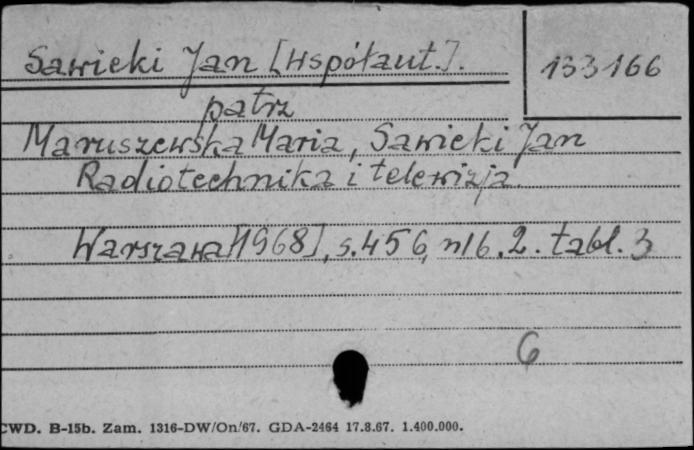 Sawicki Jan [współaut.].
133166
patrz
Maruszewska Maria, Sawicki Jan
Radiotechnika i telewizja.
Warszawa [1968], s. 456, nlb. 2. tabl. 3
6
CWD. B-15b. Zam. 1316-DW/On/67. GDA-2464 17.8.67. 1.400.000.